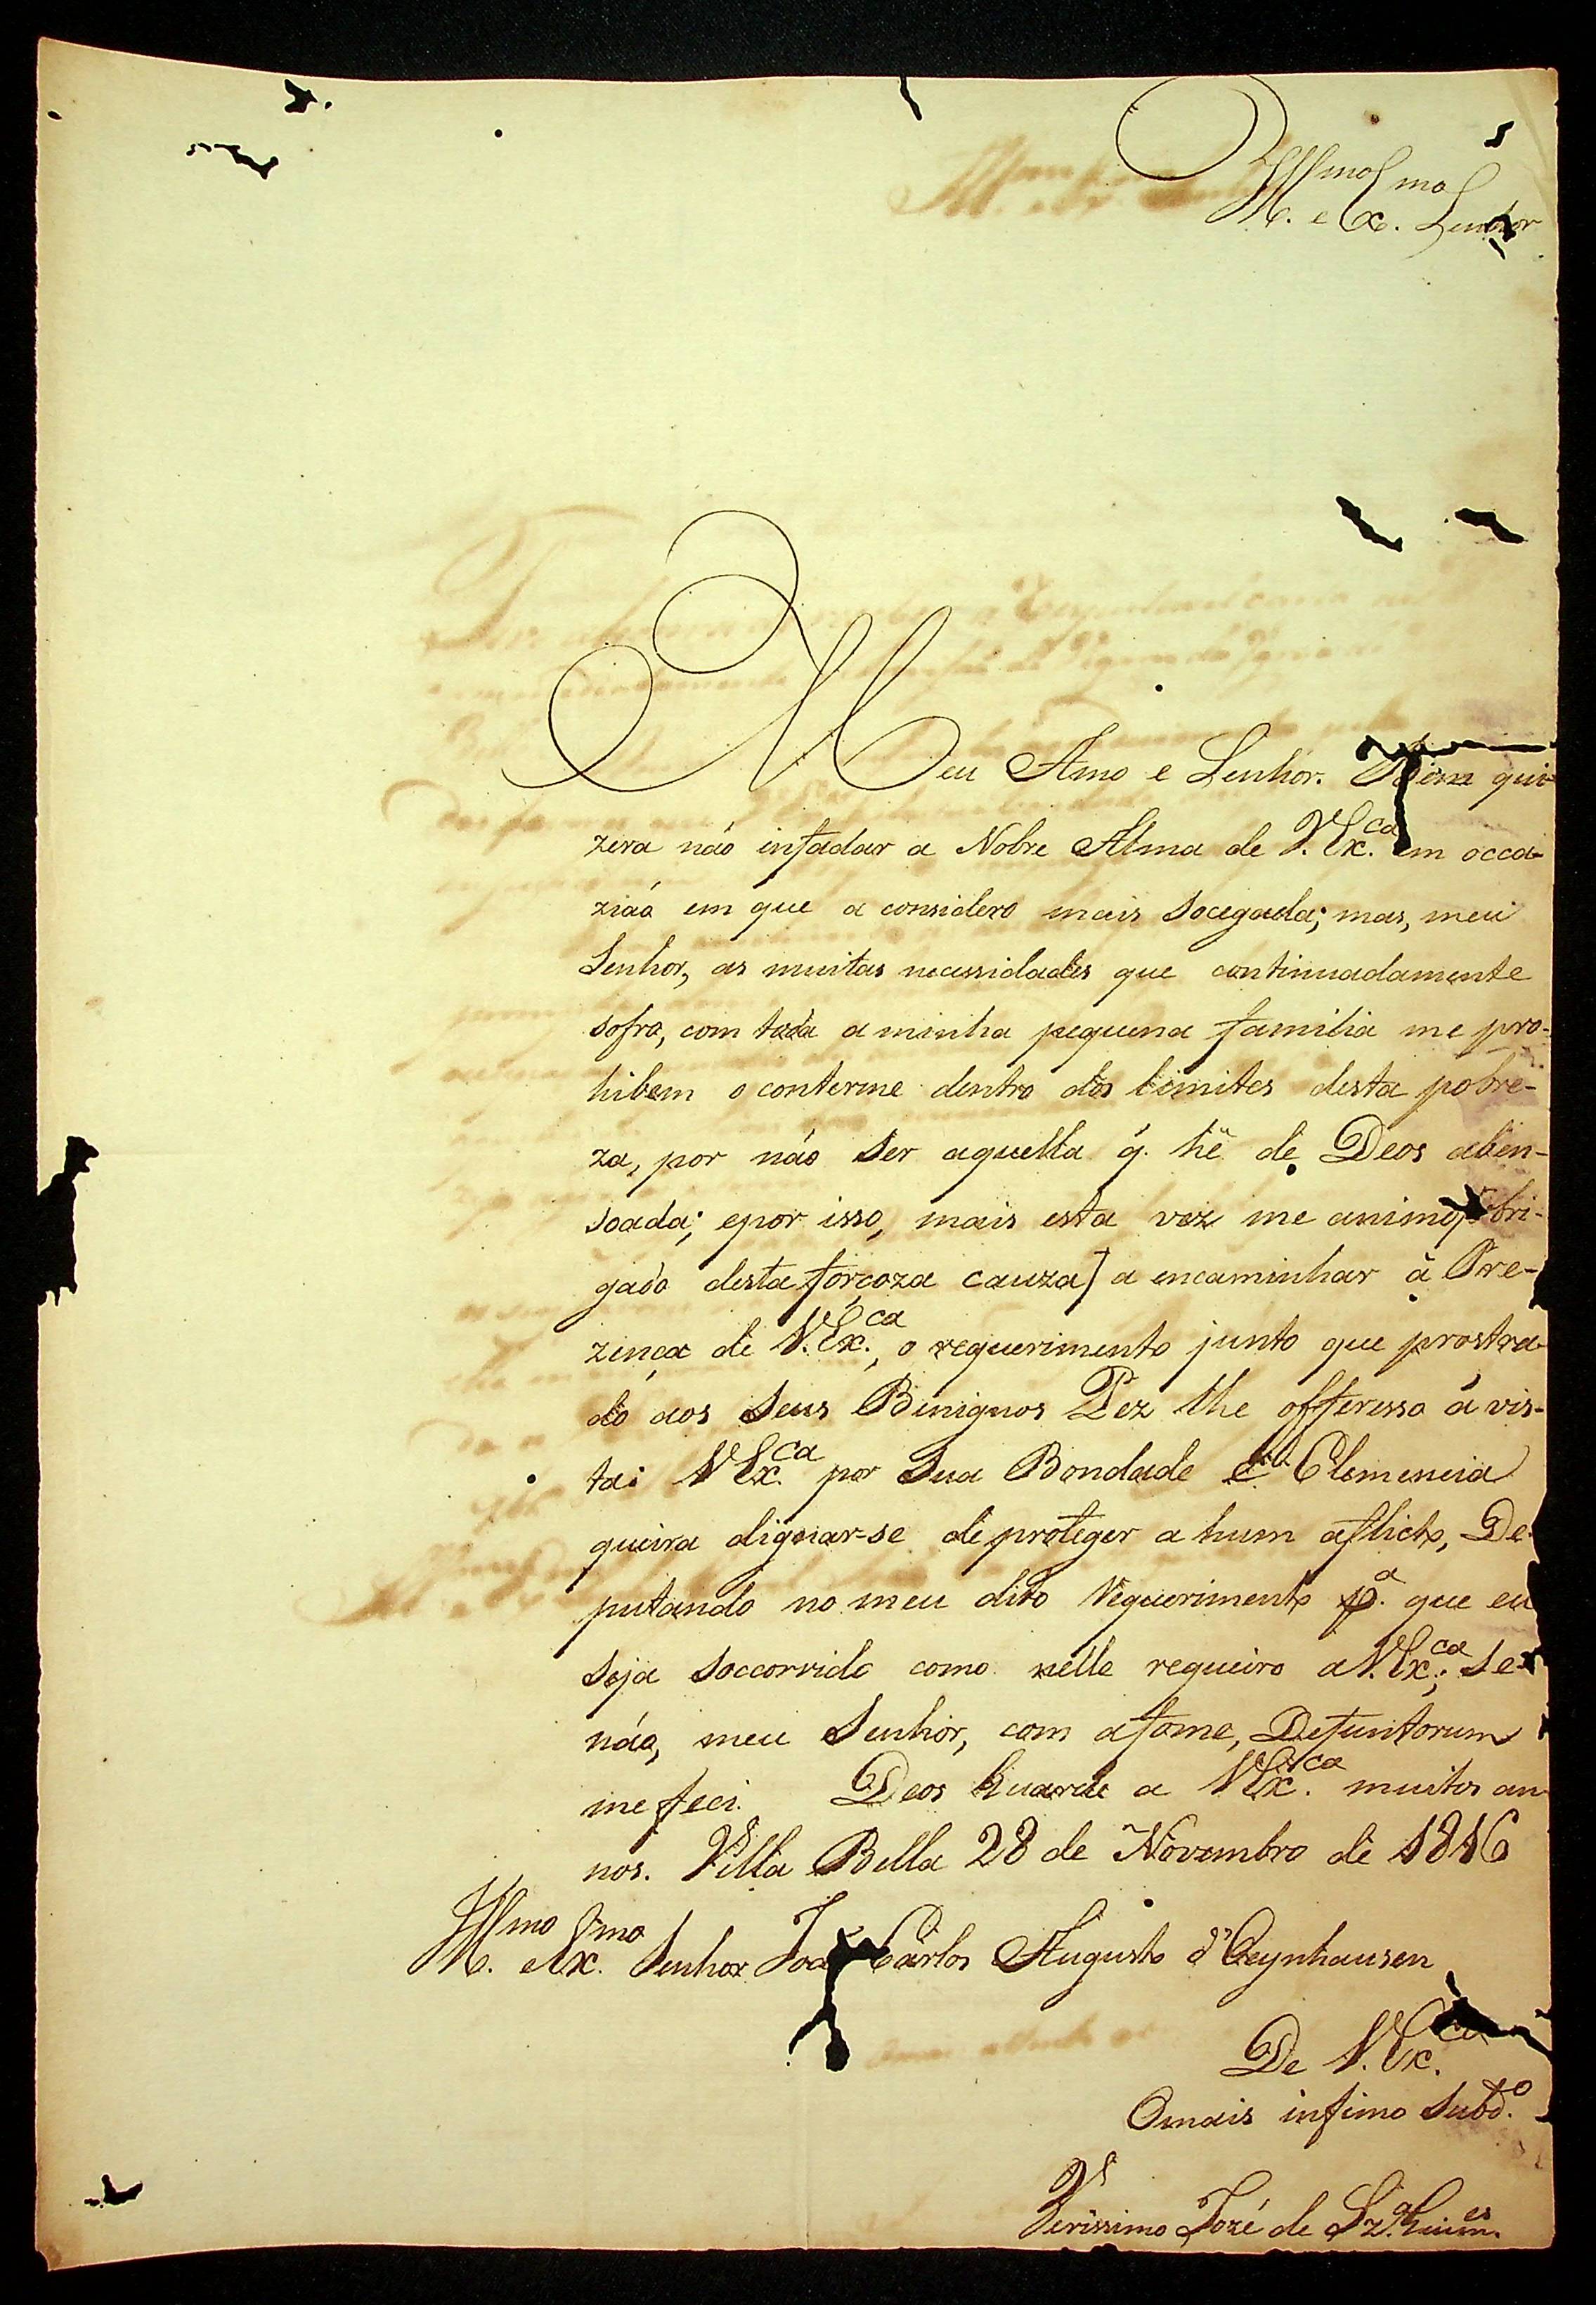 Ill.mo e Ex.mo Senhor
Meu Amo e Senhor. Bem qui-
zera náo infadar a Nobre Alma de V. Ex.ca em occa-
ziáo em que a considero mais socegada; mas, meu
Senhor, as muitas necessidades que continuadamente
sofro, com toda a minha pequena familia me pro-
hibem o conterme dentro dos limites desta pobre-
za, por náo ser aquella q̃. hé de Deos aben-
soada; epor isso, mais esta vez me animo bri-
gado desta forçoza cauza) a encaminhar à Pre-
zença de V. Ex.ca, o requerimento junto que prostra-
do aos Seus Benignos Pez lhe offeresso á vis-
ta: V Ex.ca por Sua Bondade e Clemencia
queira dignar-se de proteger a hum aflicto, De-
putando no meu dito Requerimento p.a que eu
seja soccorrido como nelle requeiro a V. Ex.ca; se-
náo, meu Senhor, com afome, Defuntorum
me feci. Deos Guarde a V Ex.ca muitos an-
nos. Villa Bella 28 de Novembro de 1816
Ill.mo e Ex.mo Senhor Joáo Carlos Augusto d'Oeynhausen
De V. Ex.ca
Omais infimo Subd.o
Verissimo Jozé de Sz.a Guim.es